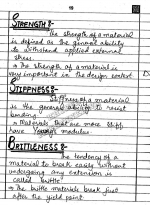 STRENGTH:-
The strength of a material
is defined as the general ability
to withstand applied external
stress
→ The strength of a material is
very important in the design context
STIFFNESS:-
Stiffness of a material
is the general ability to resist
bending.
→ Materials that are more stiff
have Young's modulus
BRITTLENESS:-
The tendency of a
material to break easily without
undergoing any extension is
called "brittle"
→ The brittle materials break just
after the yield point